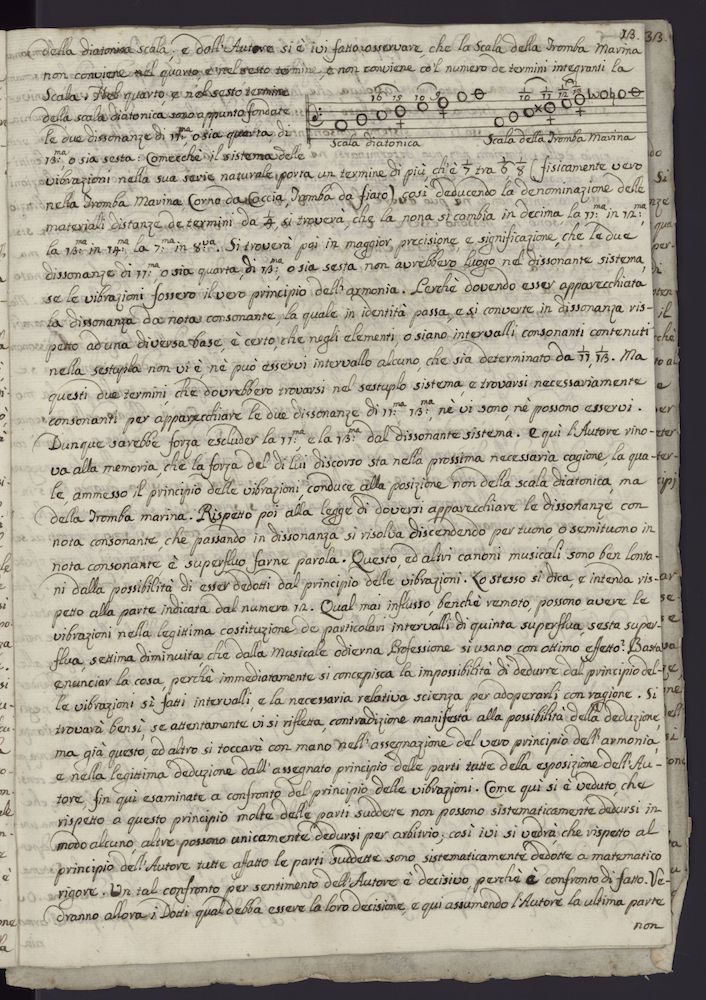 13. 313.
della diatonica scala; e dall'Autore si è ivi fatto osservare che la Scala della Tromba Marina
non conviene nel quarto, e nel sesto termine, e non conviene co'l numero de termini integranti la
Scala. Nel quarto e nel sesto termine
della scala diatonica sono appunto fondate
le due dissonanze di 11.ma o sia quarta di
13.ma o sia sesta. Comecchè il sistema delle
Scala diatonica Scala della Tromba Marina
vibrazioni nella sua serie naturale porta un termine di più ch'è 1/7 tra 1/6 1/8 (fisicamente vero
nella Tromba Marina Corno da Caccia, Tromba da fiato) così deducendo la denominazione delle
materiali distanze de termini da 1/4, si troverà, che la nona si cambia in decima la 11.ma in 12.ma,
la 13.ma in 14.ma la 7.ma in 8.va. Si troverà poi in maggior precisione, e significazione, che le due
dissonanze di 11.ma o sia quarta, di 13.ma, o sia sesta non avrebbero luogo nel dissonante sistema,
se le vibrazioni fossero il vero principio dell'armonia. Perchè dovendo esser apparecchiata
la dissonanza da nota consonante, la quale in identità passa, e si converte in dissonanza ris-
petto ad una diversa base, è certo, che negli elementi, o siano intervalli consonanti contenuti
nella sestupla non vi è nè può esservi intervallo alcuno, che sia determinato da 1/11, 1/13. Ma
questi due termini che dovrebbero trovarsi nel sestuplo sistema, e trovarsi necessariamente
consonanti per apparecchiare le due dissonanze di 11.ma 13.ma, nè vi sono nè possono esservi.
Dunque sarebbe forza escluder la 11.ma e la 13.ma dal dissonante sistema. E qui l'Autore rino-
va alla memoria, che la forza del di lui discorso sta nella prossima necessaria cagione, la qua-
le, ammesso il principio delle vibrazioni, conduce alla posizione non della scala diatonica, ma
della Tromba marina. Rispetto poi alla legge di doversi apparecchiare le dissonanze con
nota consonante, che passando in dissonanza si risolva discendendo per tuono o semituono in
nota consonante è superfluo farne parola. Questo, ed altri canoni musicali sono ben lonta-
ni dalla possibilità di esser dedotti dal principio delle vibrazioni. Lo stesso si dica, e intenda ris-
petto alla parte indicata dal numero 12. Qual mai influsso, benchè remoto, possono avere le
vibrazioni nella legittima costituzione de particolari intervalli di quinta superflua, sesta super-
flua, settima diminuita che dalla Musicale odierna Professione si usano con ottimo effetto? Basta
enunciar la cosa, perchè immediatamente si concepisca la impossibilità di dedurre dal principio del-
le vibrazioni sì fatti intervalli, e la necessaria relativa scienza per adoperarli con ragione. Si
troverà bensì, se attentamente vi si rifletta, contradizione manifesta alla possibilità della deduzione
ma già questo, ed altro si toccarà con mano nell'assegnazione del vero principio dell'armonia,
e nella legittima deduzione dall'assegnato principio delle parti tutte della esposizione dell'Au-
tore, fin qui esaminate a confronto del principio delle vibrazioni. Come qui si è veduto, che
rispetto a questo principio molte delle parti suddette non possono sistematicamente dedursi in
modo alcuno altre possono unicamente dedursi per arbitrio; così ivi si vedrà che rispetto al
principio dell'Autore tutte afatto le parti suddette sono sistematicamente dedotte a matematico
rigore. Un tal confronto per sentimento dell'Autore è decisivo, perchè è confronto di fatto. Ve-
dranno allora i Dotti qual debba essere la loro decisione, e qui assumendo l'Autore la ultima parte
non